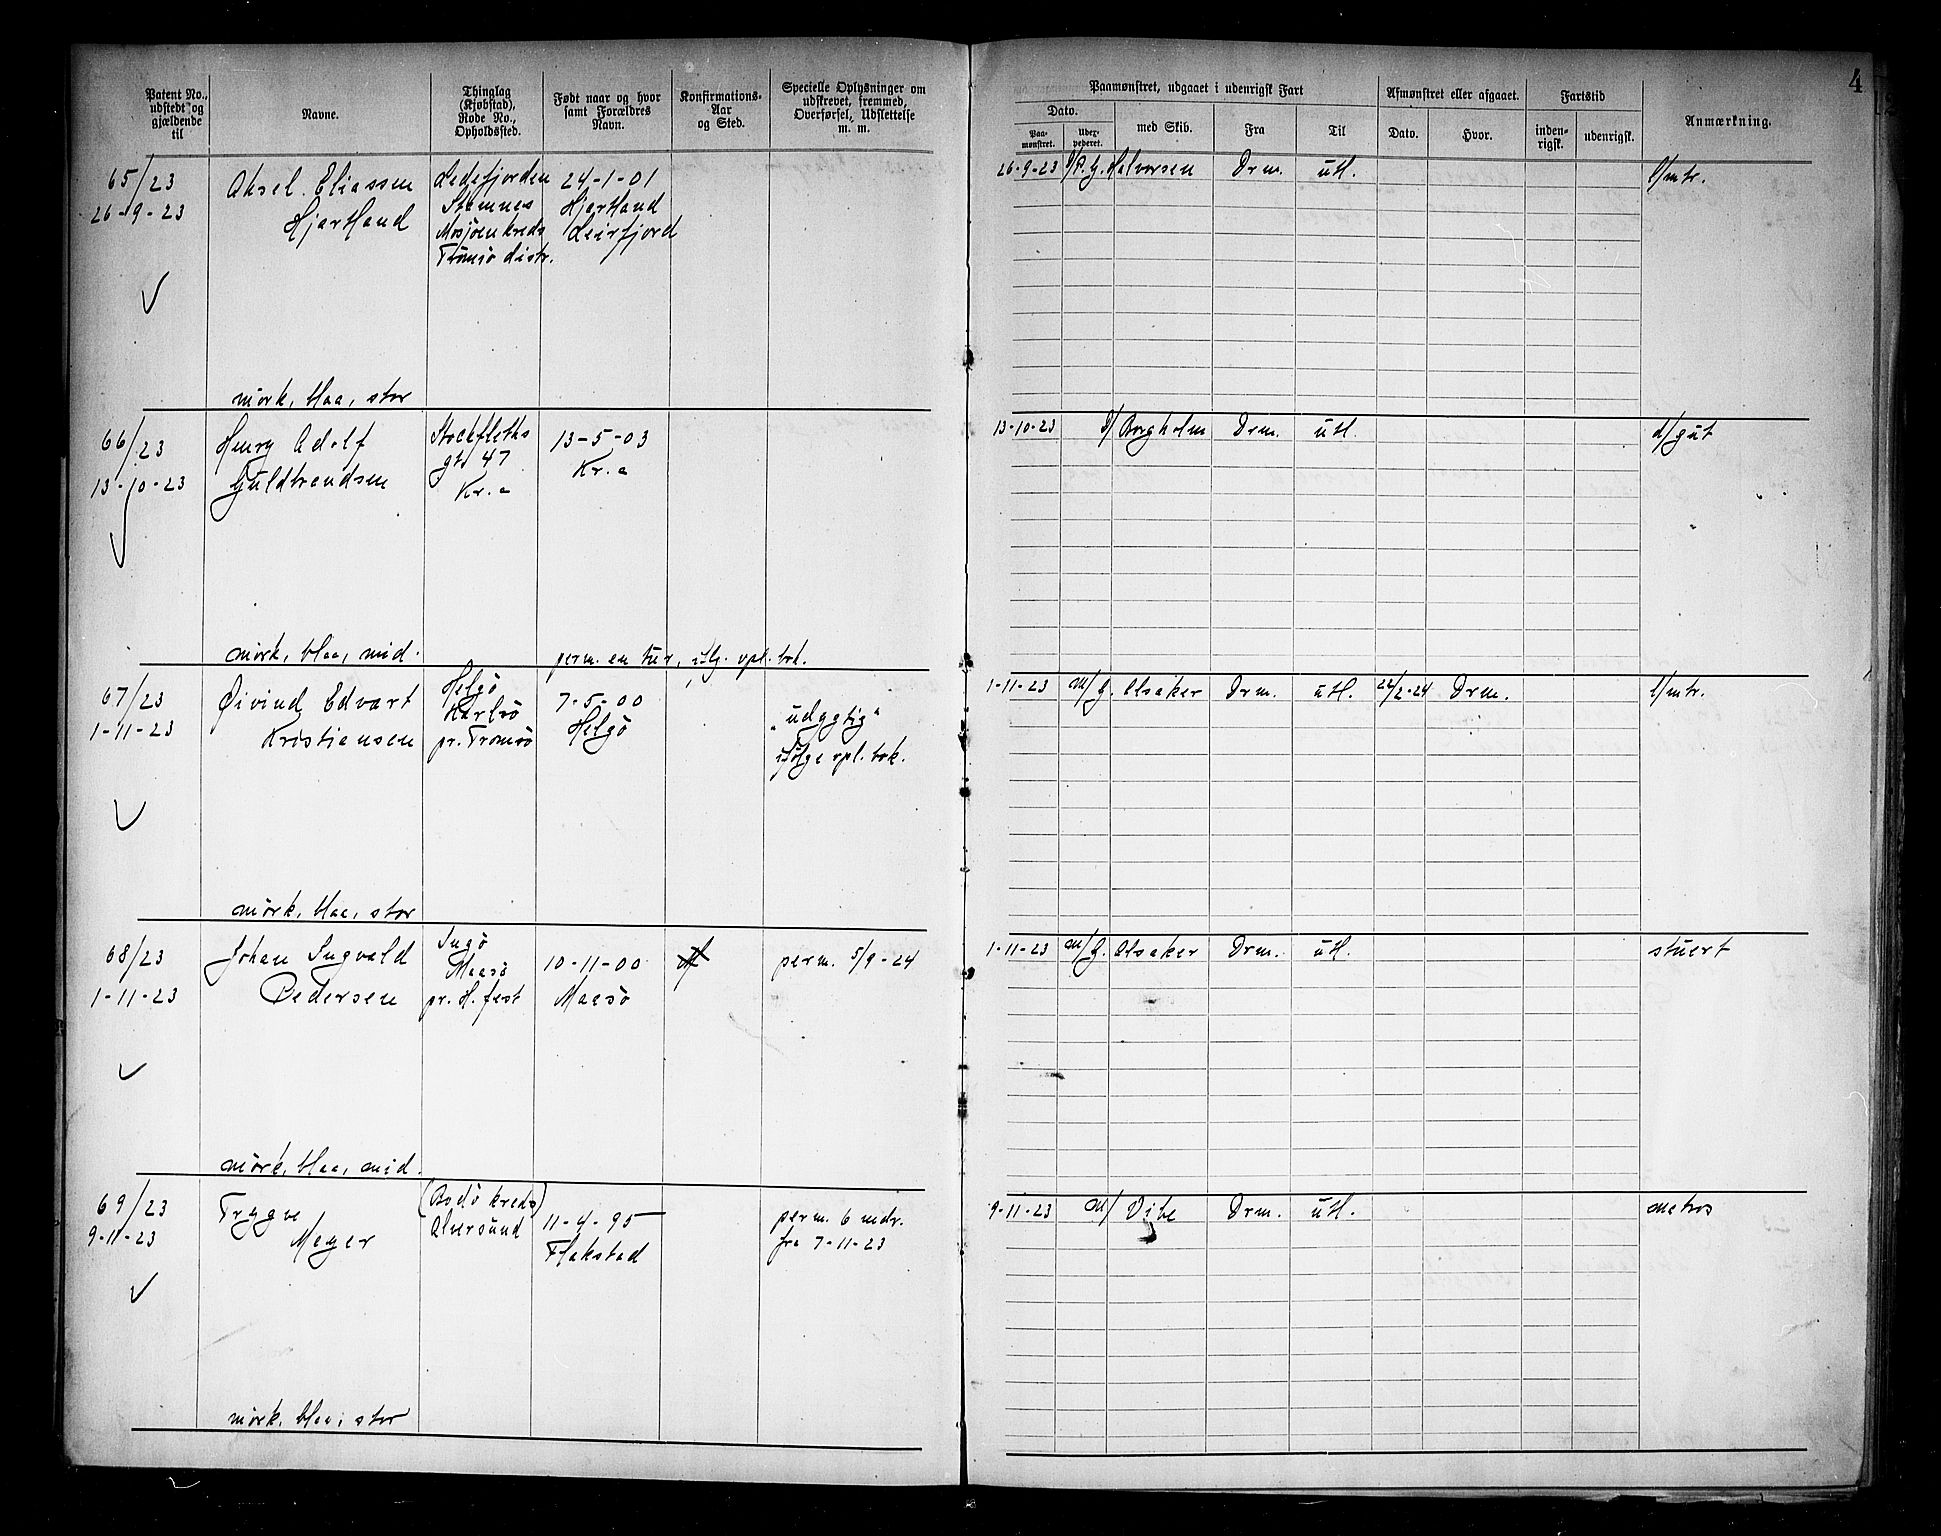 4
Patent No., udstedt og gjældende til
Navne.
Thinglag (Kjøbstad), Rode No., Opholdssted.
Født naar og hvor samt Forældres Navn.
Konfirmations-Aar og Sted.
Specielle Oplysninger om udskrevet, fremmed, Overførsel, Udslettelse m. m.
Paamønstret, udgaaet i udenrigsk Fart
Dato.
Paa-mønstret.
med Skib.
Fra
Til
Afmønstret eller afgaaet.
Dato.
Hvor.
Fartstid
inden-rigsk.
udenrigsk.
Anmærkning.
65/23
26-9-23
Aksel Eliassen
Hjartland
Stamnes
Mosjöen kreds
Tromsö distr.
24-1-01
Hjartland
Leirfjord
mörk, blaa, stor
26-9-23
Halvorsen
Drm.
utl.
l/mtr.
66/23
13-10-23
Henry Adolf
Guldbrandsen
Stockfleths
gt. 47
Kr.a
13-5-03
Kr.a
mörk, blaa, mid.
perm. en tur, iflg. opl. bok.
13-10-23
D/ Borgholm
Drm.
utl.
d/gut
67/23
1-11-23
Øivind Edvart
Kristiansen
Helgö
Karlsö
pr. Tromsö
7-5-00
Helgö
"udygtig"
ifölge opl. bok.
mörk, blaa, stor
1-11-23
M/ G. Olsaker
Drm.
utl.
Drm.
l/mtr.
68/23
1-11-23
Johan Ingvald
Pedersen
Ingö
Maasö
pr. H.fest
10-11-00
Maasö
perm. 5/9-24
mörk, blaa, mid.
1-11-23
M/ G. Olsaker
Drm.
utl.
stuert
69/23
9-11-23
Trygve
Meyer
(Bodö kreds)
Ølversund
11-4-95
Flakstad
perm. 6 mdr.
fra 7-11-23
mörk, blaa, stor
9-11-23
M/ Vibe
Drm.
utl.
matros